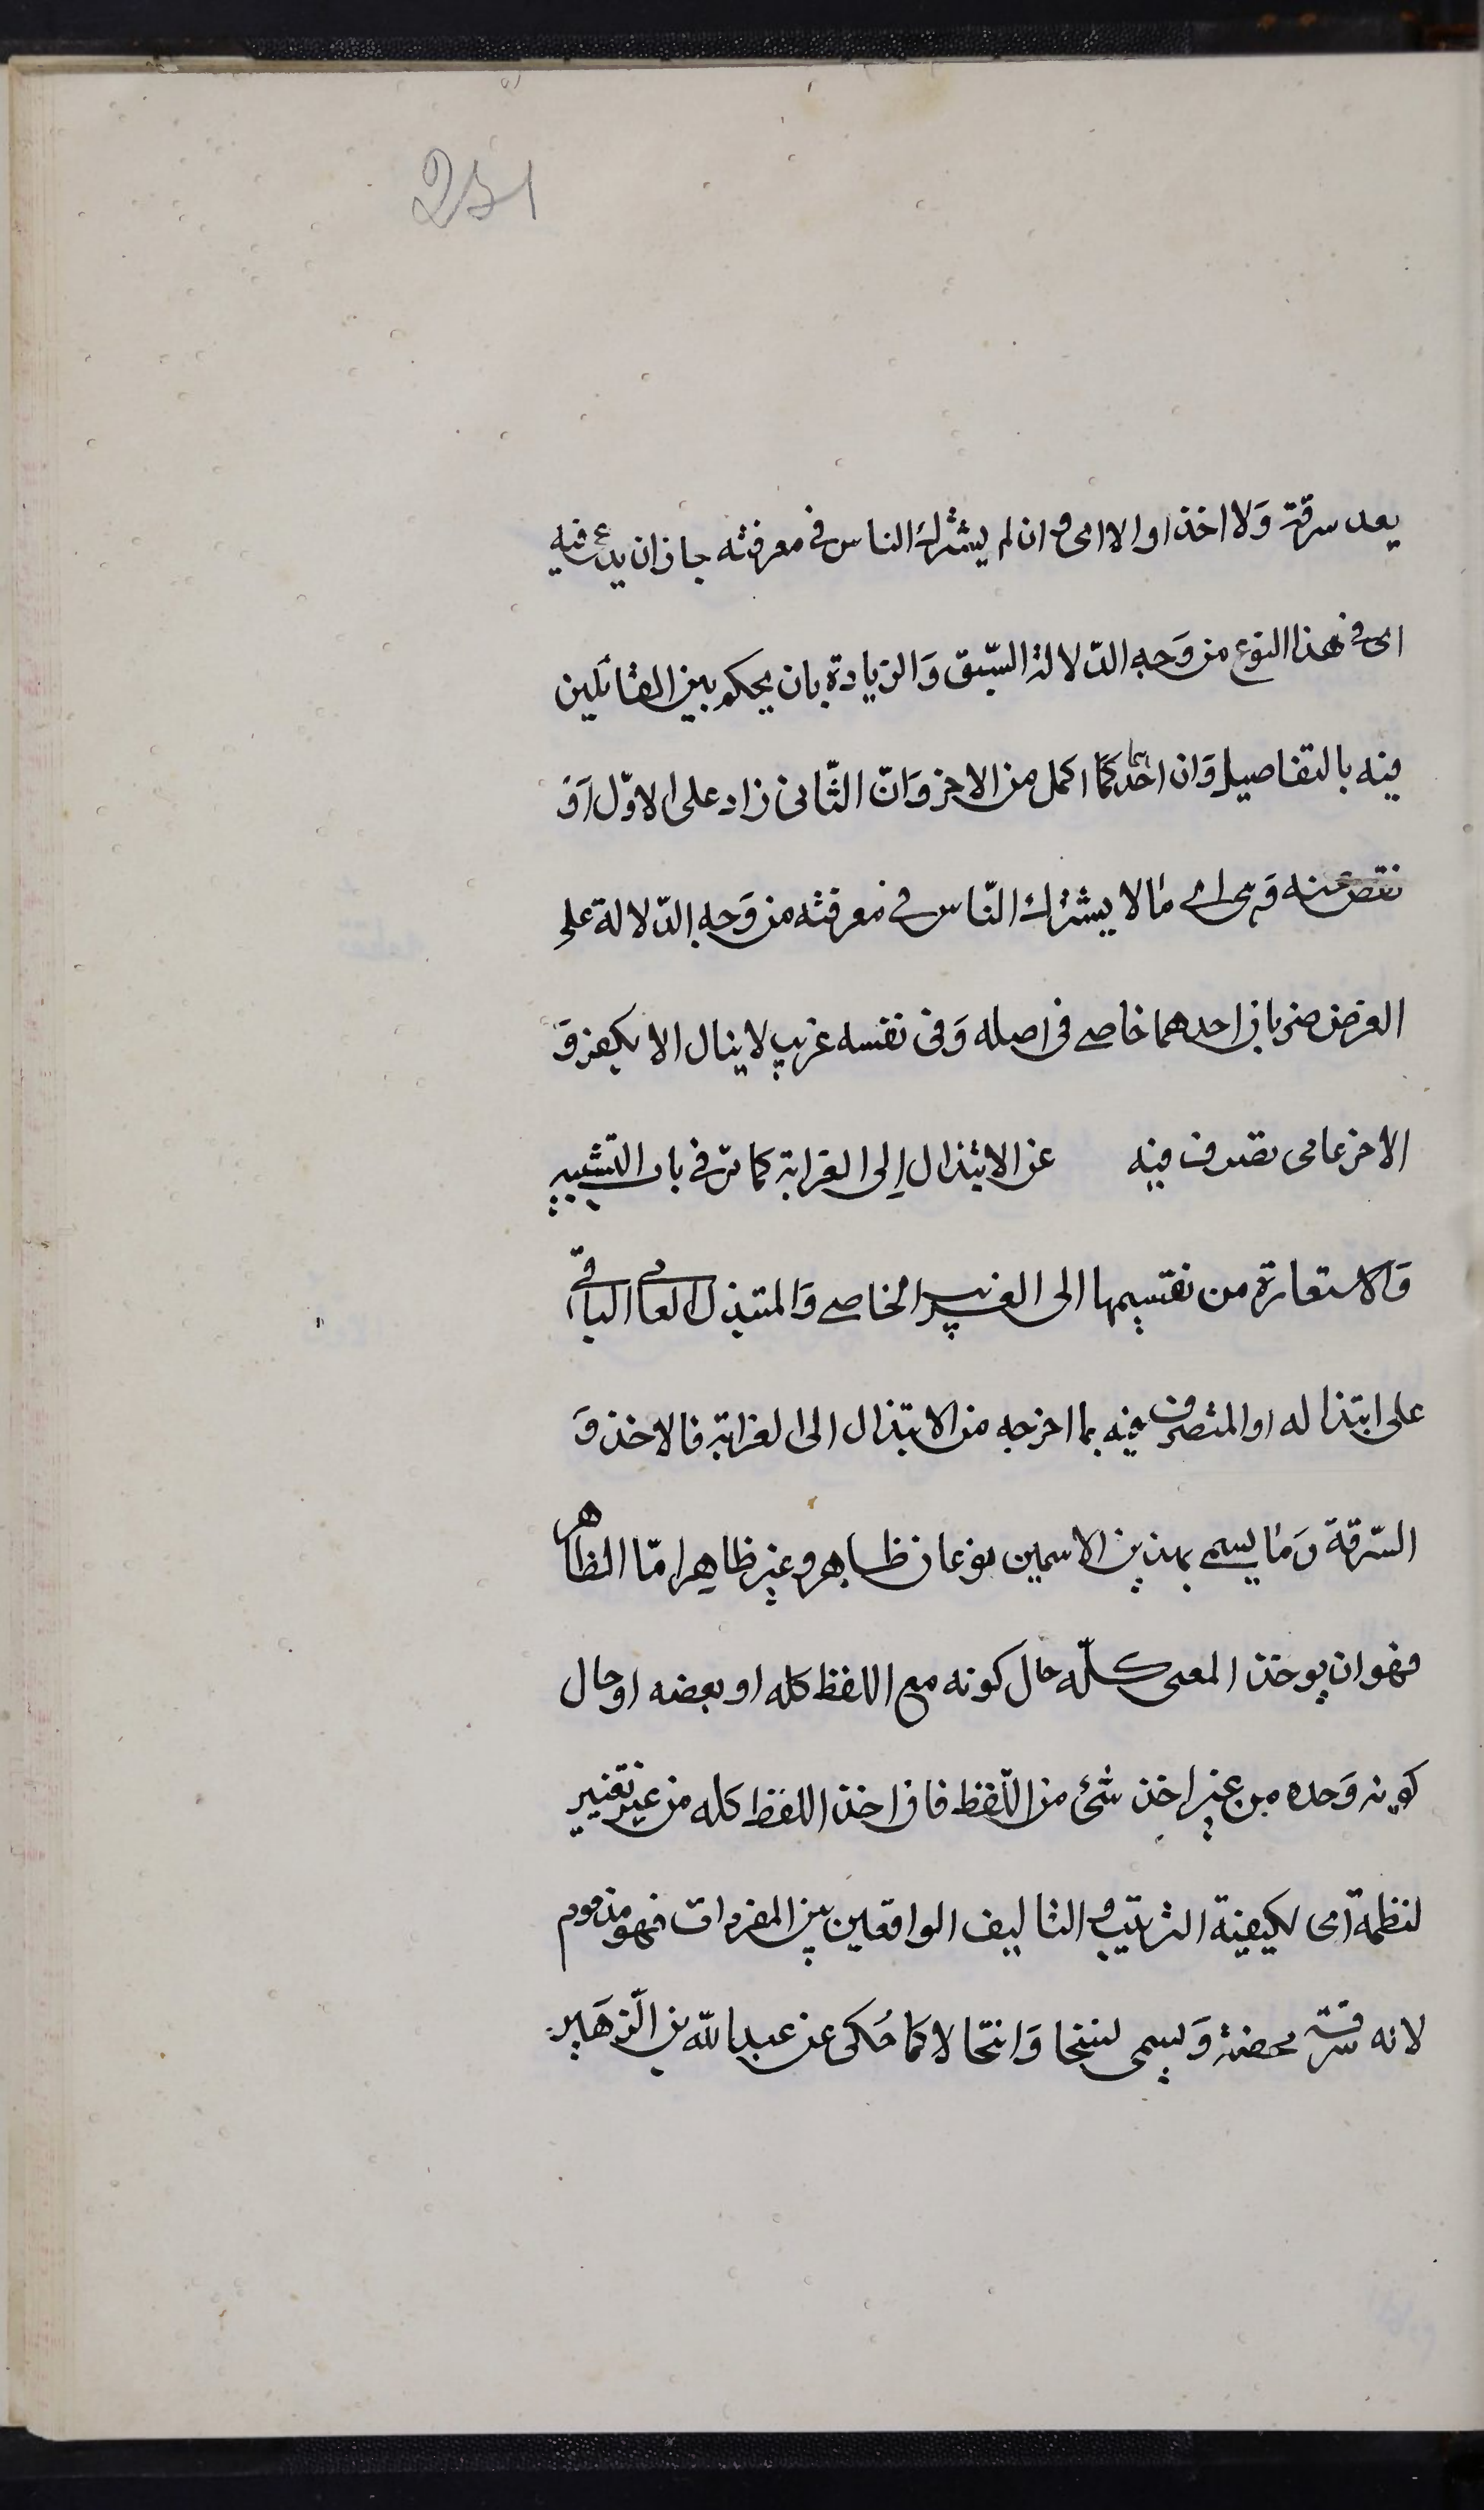 251
يعد سرقة وَلا اخذا والا اى وان لم يشترك الناس في معرفته جاز ان يدعى فيه
اى في هذا النوع من وَجه الدّلالة السّبق وَالزيادة بان يحكم بين القائلين
فيه بالتفاصيل وَان احدهما اكمل من الاخر وَانّ الثّانى زاد على الاوّل اَوْ
نقص عنه وَهى اى مالا يشترك النّاس في معرفته من وَجه الدّلالة على
الغرض ضربان احدهما خاصى فى اصله وَفى نفسه غريب لا ينال الا بكفر وَ
الاخر عامى تصرف فيه عن الابتذال اِلى الغرابة كما مرّ في باب التشبيه
وَالاستعارة من تقسيمها الى الغريب الخاصى وَالمبتذل العامى الباقى
على ابتذاله او المتصرف فيه بما اخرجه من الابتذال الى الغرابة فالاخذ وَ
السّرقة وَما يسمى بهذين الاسمين نوعان ظاهر وغير ظاهر امّا الظاهر
فهو ان يوخذ المعنى كلّه حال كونه مع اللفظ كله او بعضه او حال
كونه وَحده من غير اخذ شئ من اللّفظ فان اخذ اللفظ كله من غير تغيير
لنظمه اى لكيفية الترتيب والتاليف الواقعين بين المفردات فهو مذموم
لانه سرقة محضة وَيسمى نسخا وَانتحالا كما حُكى عن عبدالله بن الزهَير